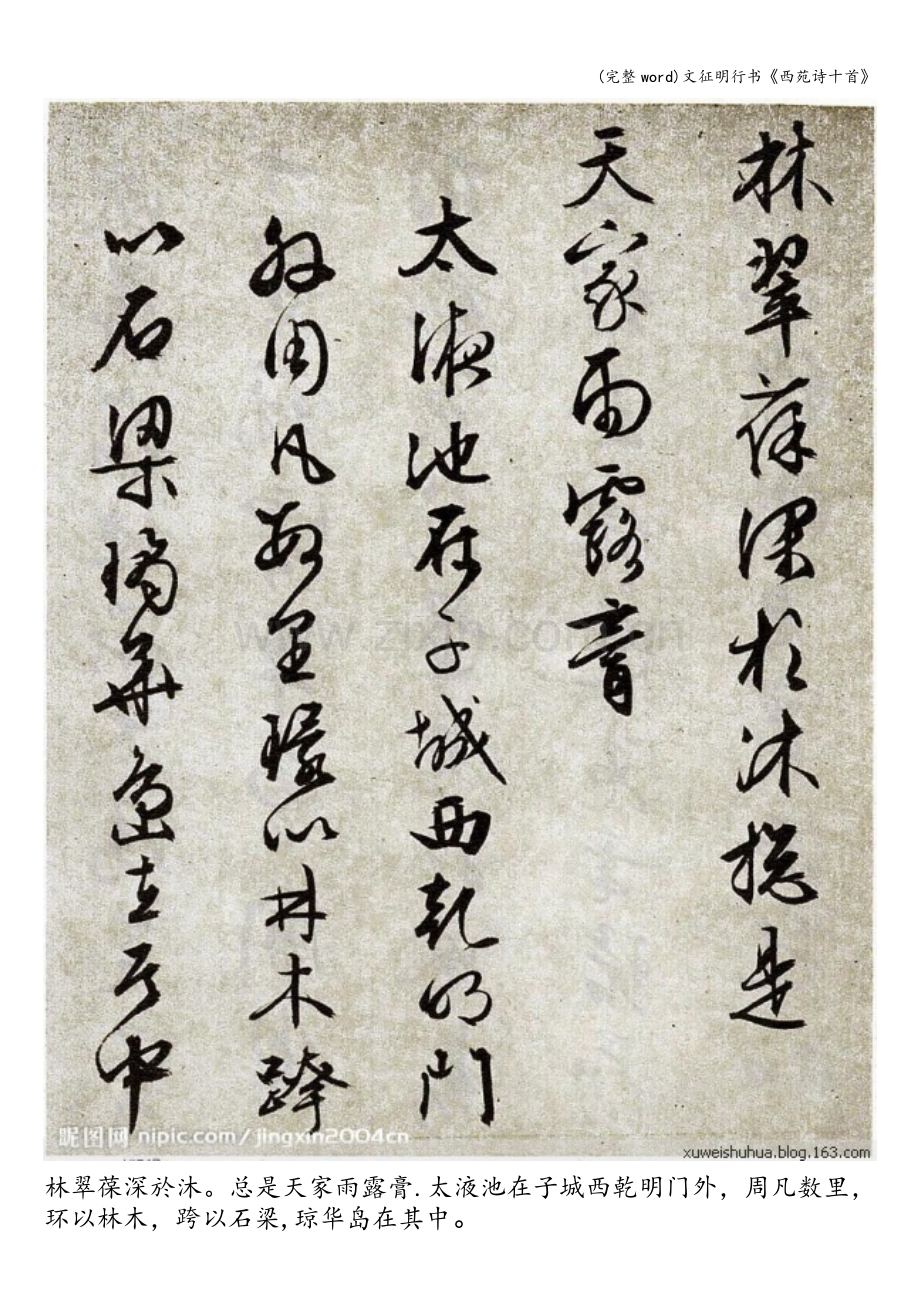 (完整word)文征明行书《西苑诗十首》
林翠葆深於沐揔是
天家雨露膏
太液池在子城西乾明门
外周凡数里环以林木跨
以石梁琼华岛在其中
www.zixin.com.cn
昵图网 nipic.com/jingxin2004cn
xuweishuhua.blog.163.com
林翠葆深於沐。总是天家雨露膏.太液池在子城西乾明门外，周凡数里，
环以林木，跨以石梁,琼华岛在其中。